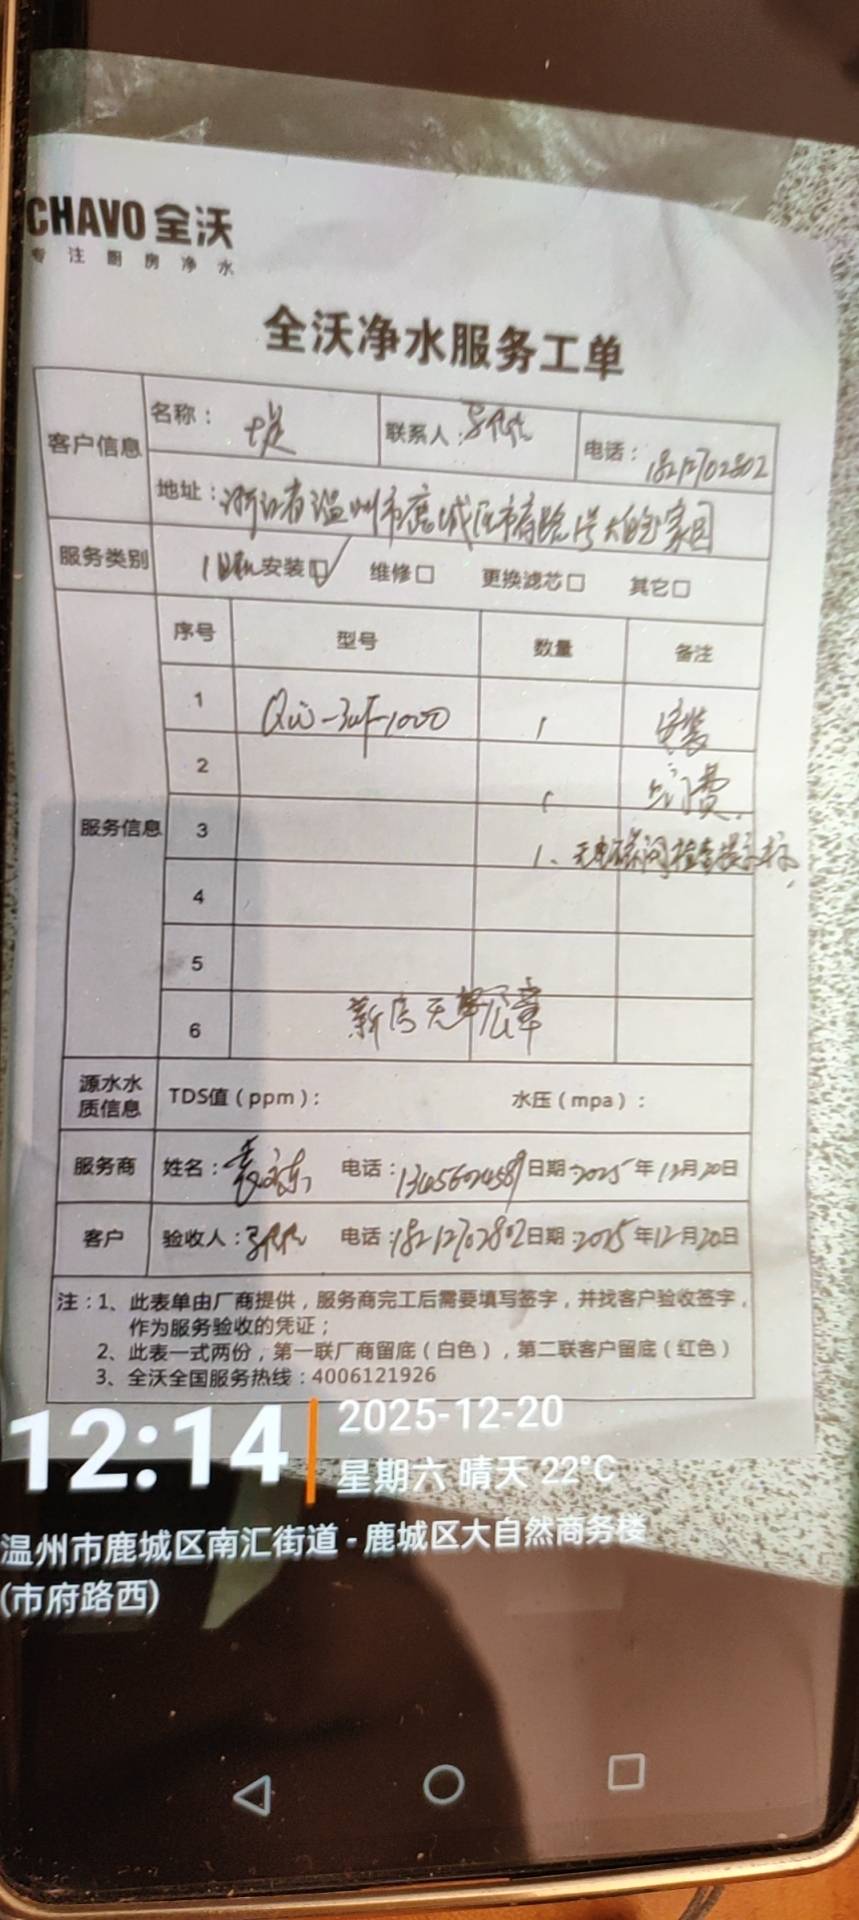 CHAVO 全沃
专注厨房净水
全沃净水服务工单
客户信息 名称： 联系人： 电话：18212702802
地址：浙江省温州市鹿城区市府路1号大自然家园
服务类别 安装☑ 维修□ 更换滤芯□ 其它□
服务信息 序号 型号 数量 备注
1 QW-3UF-1000 1 安装
2 1 上门费
3 1、无电磁阀检查
4
5
6 新店无公章
源水水质信息 TDS值（ppm）： 水压（mpa）：
服务商 姓名： 电话：13456024589 日期：2025年12月20日
客户 验收人： 电话：18212702802 日期：2025年12月20日
注：1、此表单由厂商提供，服务商完工后需要填写签字，并找客户验收签字，
作为服务验收的凭证；
2、此表一式两份，第一联厂商留底（白色），第二联客户留底（红色）
3、全沃全国服务热线：4006121926
12:14
2025-12-20
星期六 晴天 22°C
温州市鹿城区南汇街道 - 鹿城区大自然商务楼
(市府路西)